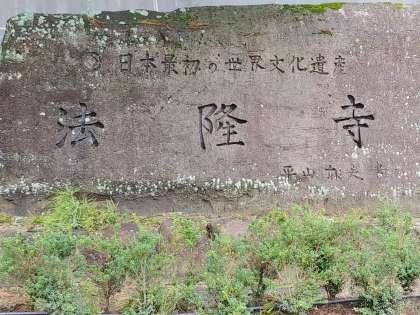 日本最初の世界文化遺産
法隆寺
平山郁夫書